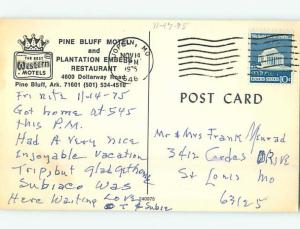 11-14-75
PINE BLUFF MOTEL
and
PLANTATION EMBERS
RESTAURANT
4600 Dollarway Road
Pine Bluff, Ark. 71601 (501) 534-4510
THE BEST
Western
MOTELS
MO
NOV 14
PM
1975
POST CARD
10c
Fri Nite 11/14-75
Got home at 545
this P.M.
Had A Very Nice
Enjoyable Vacation
Trip, but glad get home
Subiaco Was
Here Waiting Love
Mr & Mrs Frank
3412
St Louis Mo
63125